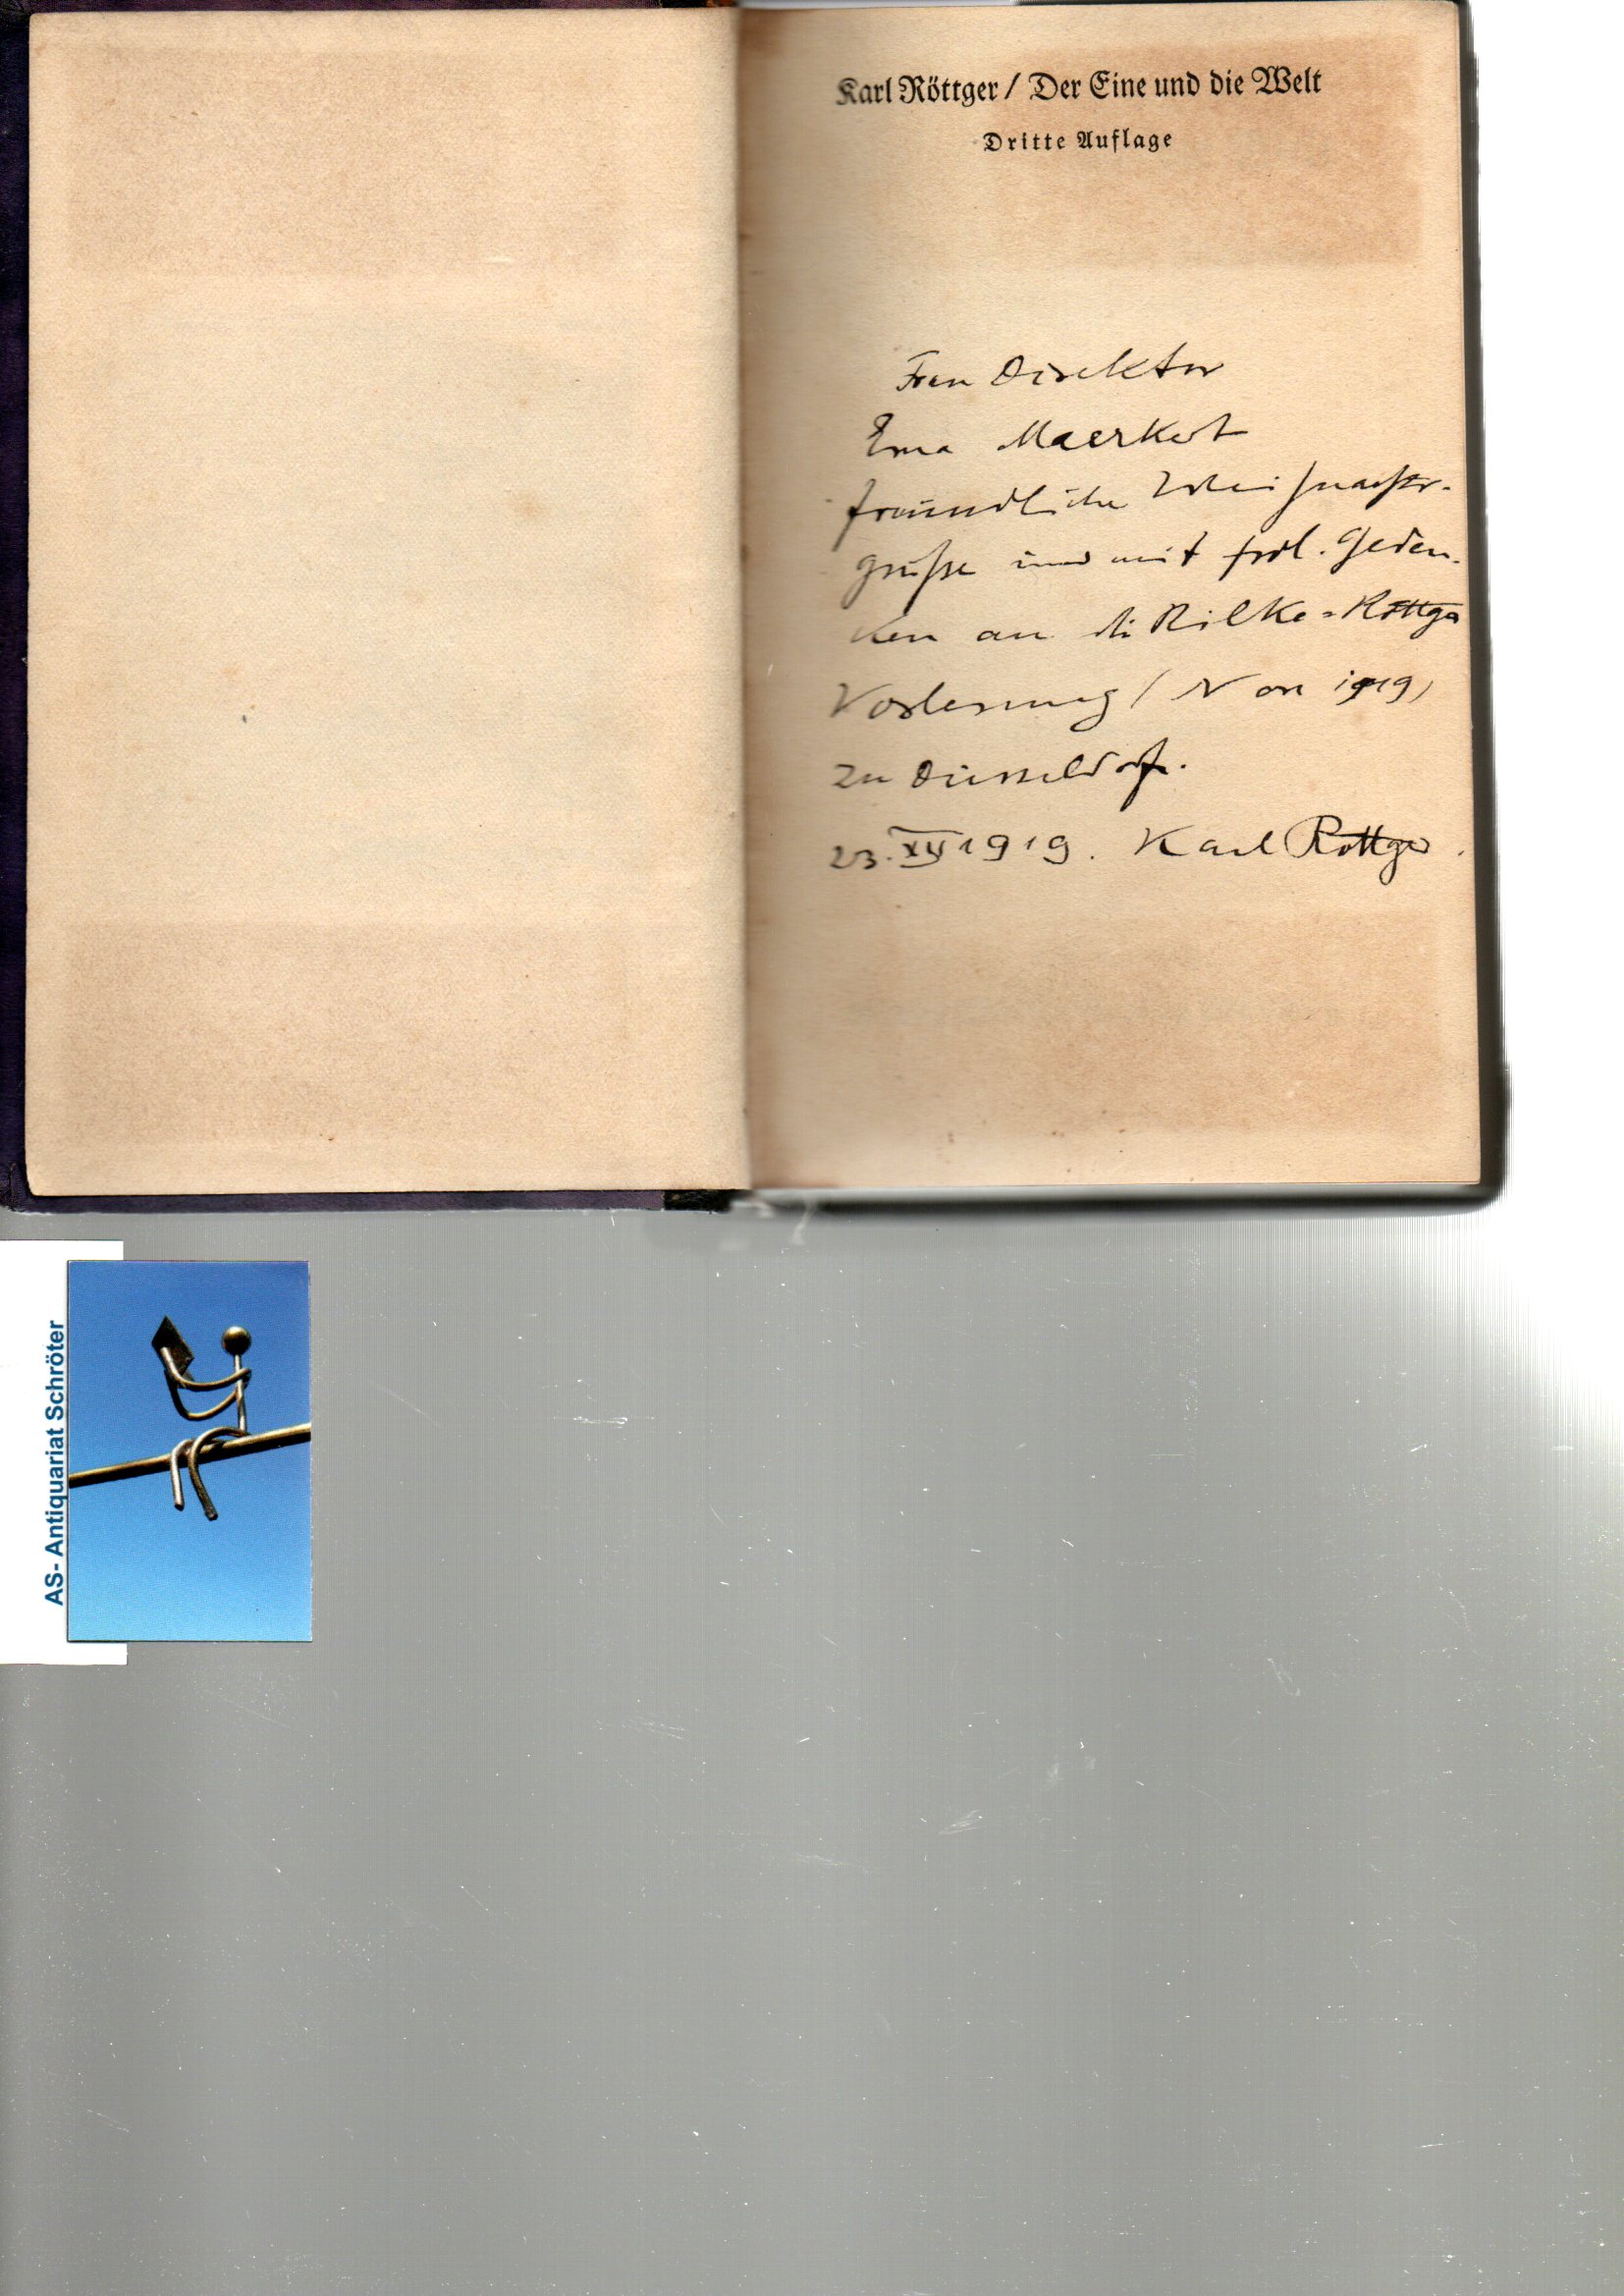 Karl Röttger / Der Eine und die Welt
Dritte Auflage
Frau Direktor
Erna Maerkert
freundliche Weihnachts-
grüsse und mit frdl. Geden-
ken an die Rilke=Röttger
Vorlesung (Nov 1919)
zu Düsseldorf.
23. XII 1919. Karl Röttger.
AS- Antiquariat Schröter